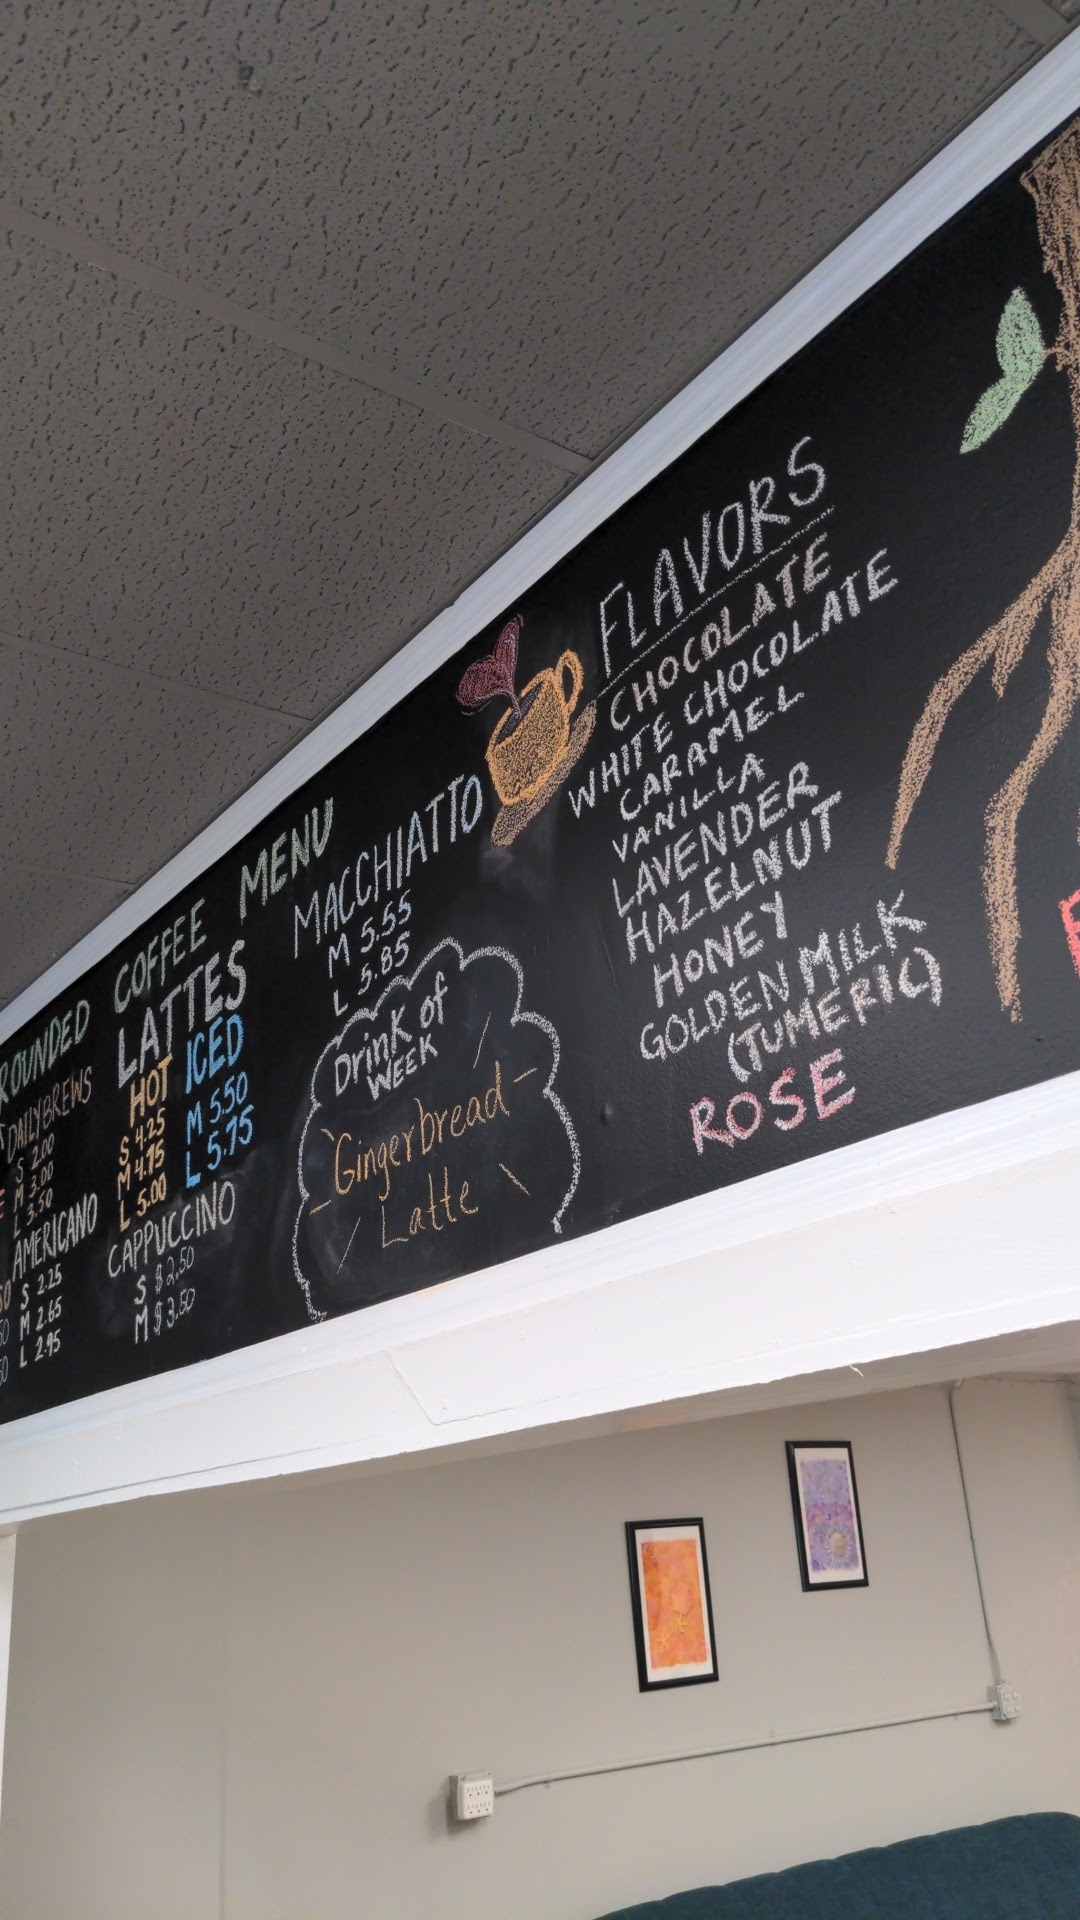 ROUNDED COFFEE MENU
DAILY BREWS
S 2.00
M 3.00
L 3.50
AMERICANO
S 2.25
M 2.65
L 2.95
LATTES
HOT
S 4.25
M 4.75
L 5.00
ICED
M 5.50
L 5.75
CAPPUCCINO
S $2.50
M $3.50
MACCHIATTO
M 5.55
L 5.85
Drink of
WEEK
Gingerbread
Latte
FLAVORS
CHOCOLATE
WHITE CHOCOLATE
CARAMEL
VANILLA
LAVENDER
HAZELNUT
HONEY
GOLDEN MILK
(TUMERIC)
ROSE